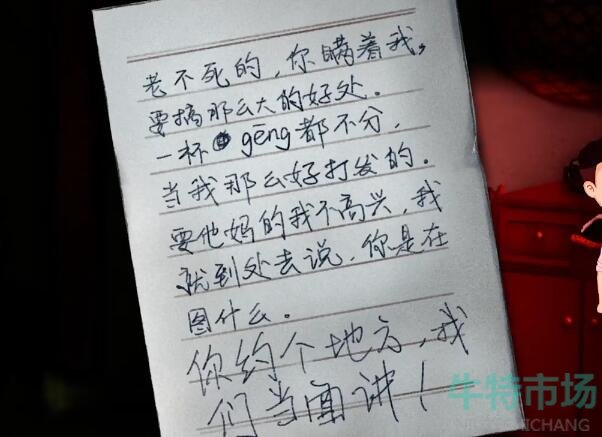 老不死的，你瞒着我，
要搞那么大的好处．
一杯 gēng都不分，
当我那么好打发的．
要他妈的我不高兴，我
就到处去说，你是在
图什么。
你约个地方，我
们当面讲！
牛特市场